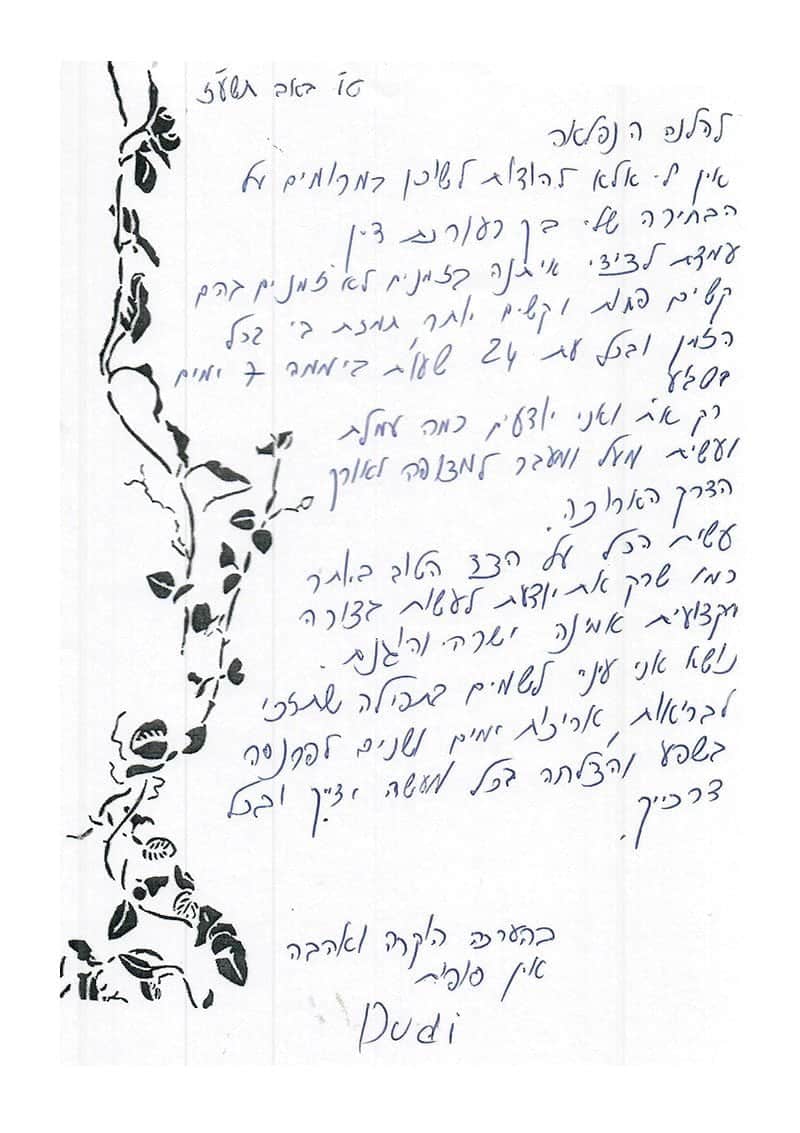 ט"ו באב תשע"ז
להלנה הנפלאה
אין לי אלא להודות לשוכן במרומים על
הבחירה שלי בך כעורכת דין
עמדת לצידי איתנה בזמנים לא זמנים בהם
קשים פחות וקשים יותר, תמכת בי בכל
הזמן ובכל עת 24 שעות ביממה 7 ימים
בשבוע
רק את ואני יודעים כמה עמלת
ועשית מעל ומעבר למצופה לאורך
הדרך הארוכה.
עשית הכל על הצד הטוב ביותר
כמו שרק את יודעת לעשות בצורה
מקצועית אמינה ישרה והוגנת.
נושא אני עיני לשמים בתפילה שתזכי
לבריאות, אריכות ימים ושנים לפרנסה
בשפע והצלחה בכל מעשה ידייך ובכל
דרכייך.
בהערכה הוקרה ואהבה
אין סופית
Dudi